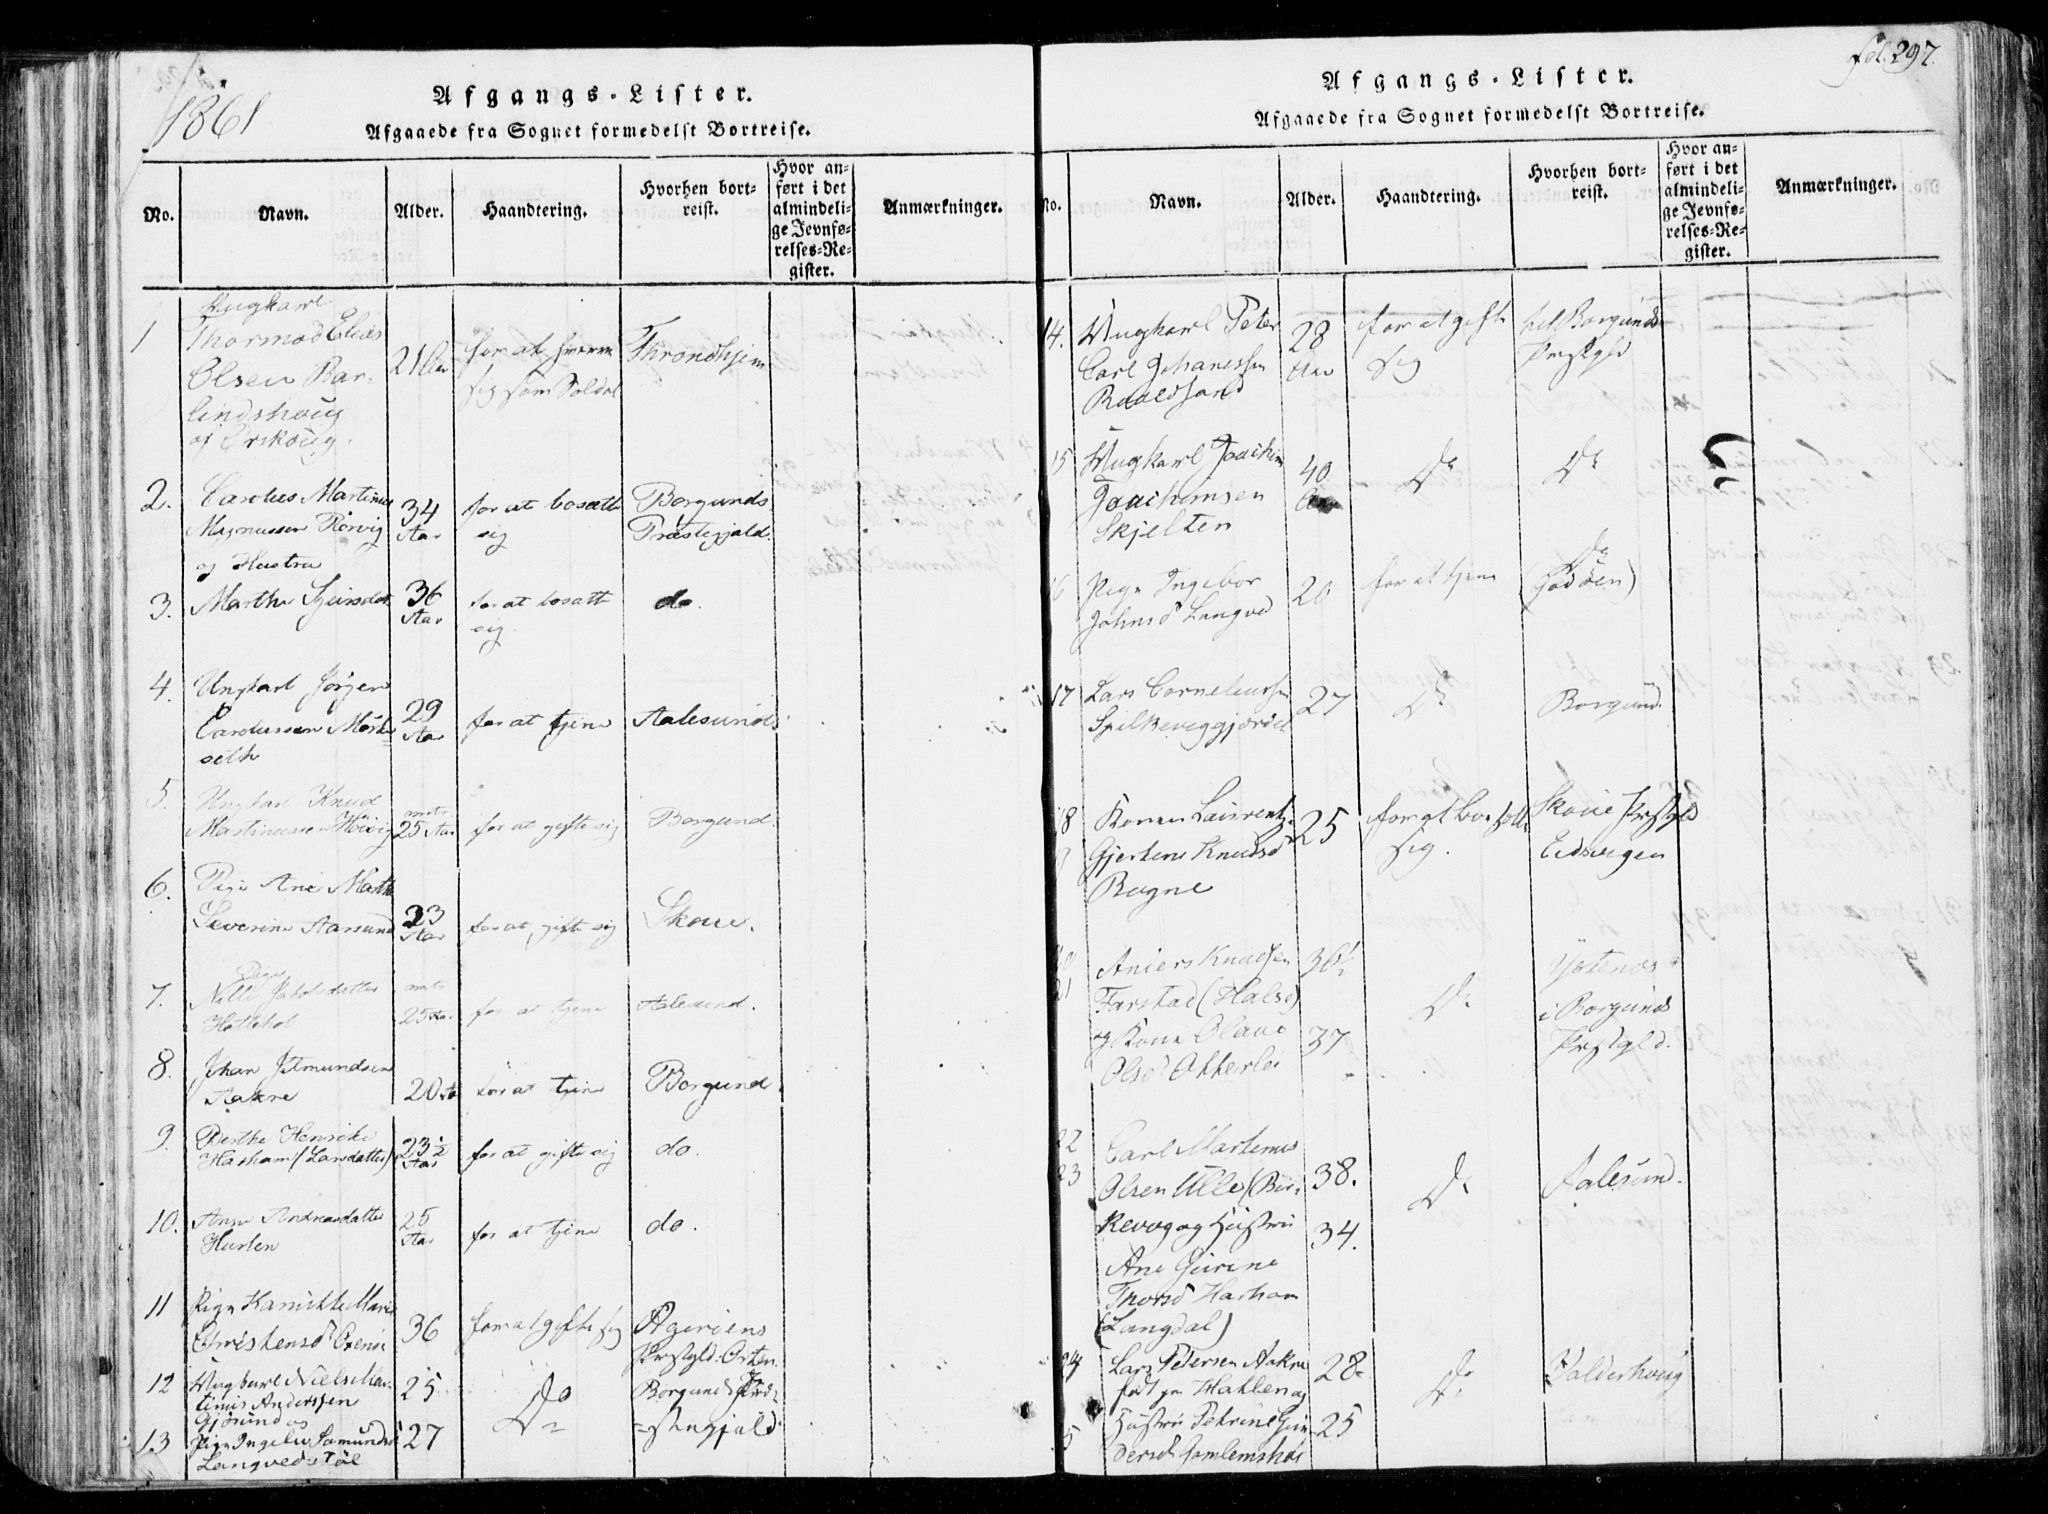 1861
Afgangs-Lister.
Afgaaede fra Sognet formedelst Bortreise.
No.
Navn.
Alder.
Haandtering.
Hvorhen bort-
reist.
Hvor an-
ført i det
almindeli-
ge Jevnfø-
relses-Re-
gister.
Anmærkninger.
1
Ungkarl
Thormod Elias
Olsen Bar-
lindshoug
af Ørskoug.
21 Aar
for at
sig som Soldat
Throndhjem
2.
Carolus Martinus
Magnussen Rörvig
og Hustru
34
Aar
for at bosætte
sig
Borgunds
Præstegjæld.
3.
Marthe
36
Aar
for at bosætte
sig
do.
4.
Ungkarl Jörgen
Carolussen Mörk-
seth
29
Aar
for at tjene
Aalesund
5.
Ungkarl Knud
Martinussen
25 Aar
for at gifte sig
Borgund.
6.
Pige Ane Marthe
Severine Aarsund
33
Aar
for at gifte sig
Skoue.
7.
Pige
Jakobsdatter
Hottehol
25 Aar
for at tjene
Aalesund.
8.
Johan
Aakre
20
for at tjene
Borgund
9.
Berthe
Harham (Larsdatter)
23½
Aar
for at gifte sig
do.
10.
Anne Andreasdatter
Hurlen
25
Aar
for at tjene
do.
11
Pige Marie
Christensd
36
for at gifte sig
Agerøens
Prstgld. Orten.
12
Ungkarl Niels Mar-
tinus Anderssen
Gjøsund og
25
Do
Borgund Præ-
stegjæld
13
Pige
Langvedstøl
27
fol. 297.
Afgangs-Lister.
Afgaaede fra Sognet formedelst Bortreise.
No.
Navn.
Alder.
Haandtering.
Hvorhen bort-
reist.
Hvor an-
ført i det
almindeli-
ge Jevnfø-
relses-Re-
gister.
Anmærkninger.
14.
Ungkarl Peter
Carl Johanessen
Roaldsand
28
Aar
for at gifte
sig
til Borgunds
Prstgld
15
Ungkarl Joachim
Joachimsen
Skjelten
40
Aar
Do
Do
16
Pige Ingebor
Johnsd Langved
20
for at tjene
Do
(Godøen)
17
Lars Corneliussen
Spilkeviggjærdet
27
Do
Borgund.
18
Konen Laurentze
Gjertine Knudsd
Rogne
25
for at bosætte
sig.
Skoue Prstgld
Eidsvigen
20
21
Anders Knudsen
Farstad (Halse)
og Kone Olave
Olsd Otterlei
36½
37
Do
i Borgunds
Prstgld.
22
23
Carl Martinus
Olsen Ulle (Bir-
kevog og Hustru
Ane Gurine
Thorsd Harham
(Langdal)
38.
34.
Do
Aalesund.
24
Lars Petersen Aakre
født paa Hatlen og
Hustru Petrine Gun-
dersd Gamlemshøi
28
25
Do
Valderhoug